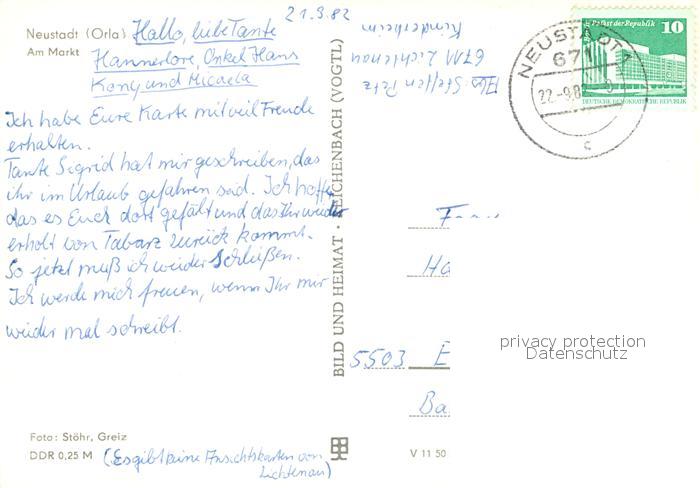 21.9.82
Neustadt (Orla)
Am Markt
Hallo, liebe Tante
Hannerlore, Onkel Hans
Kony und Micaela
Ich habe Eure Karte mit viel Freude
erhalten.
Tante Sigrid hat mir geschreiben, das
ihr im Urlaub gefahren seid. Ich hoffe
das es Euch dort gefält und das Ihr wieder
erholt von Tabarz zurück kommt.
So jetzt muß ich wieder Schließen.
Ich werde mich freuen, wenn Ihr mir
wieder mal schreibt.
Foto: Stöhr, Greiz
DDR 0,25 M
(Es gibt keine Ansichtskarten von
Lichtenau)
BILD UND HEIMAT · REICHENBACH (VOGTL)
Abs. Steffen Petz
6711 Lichtenau
Kinderheim
Palast der Republik
10
DEUTSCHE DEMOKRATISCHE REPUBLIK
NEUSTADT 1
671
22.-9.82
c
Ha
5503 E
Ba
privacy protection
Datenschutz
V 11 50